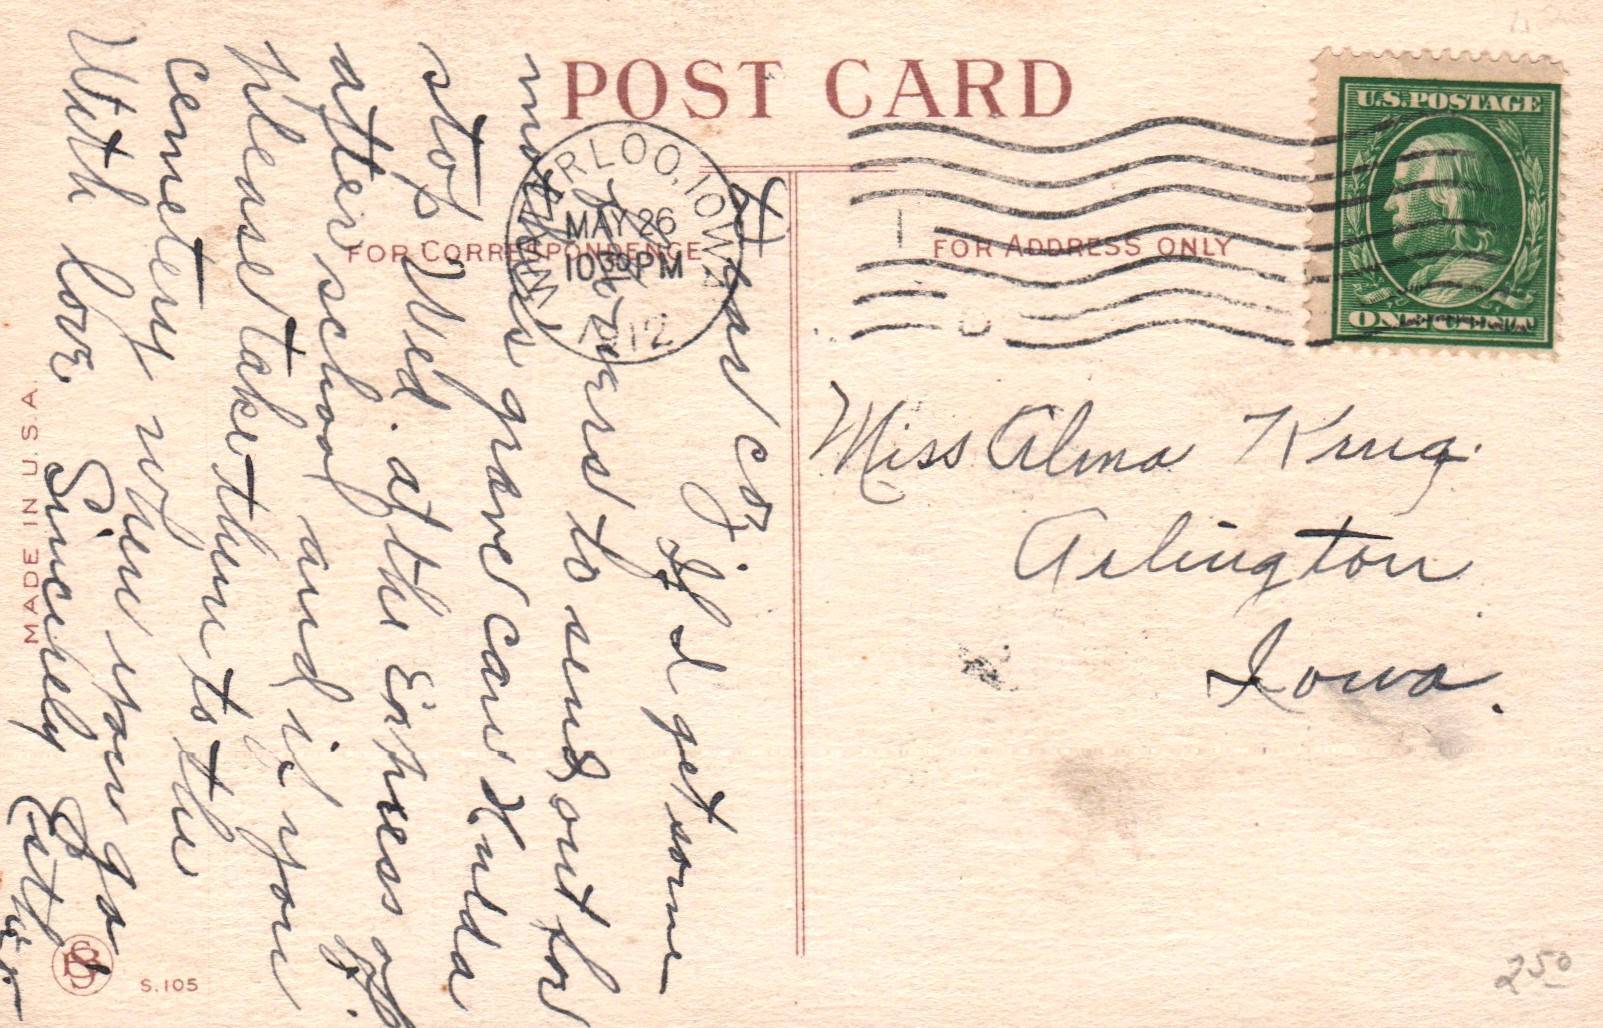 POST CARD
FOR CORRESPONDENCE
FOR ADDRESS ONLY
U.S. POSTAGE
ONE CENT
WATERLOO, IOWA
MAY 26
10 30 PM
1912
Dear Coz
If I get some
flowers to send out for
mothers grave can Hulda
stop Wed. at the Express off.
after school and if you
please take them to the
cemetery when you go
With love.
Sincerely
Miss Alma Krug.
Arlington
Iowa.
MADE IN U.S.A.
S.105
2 50